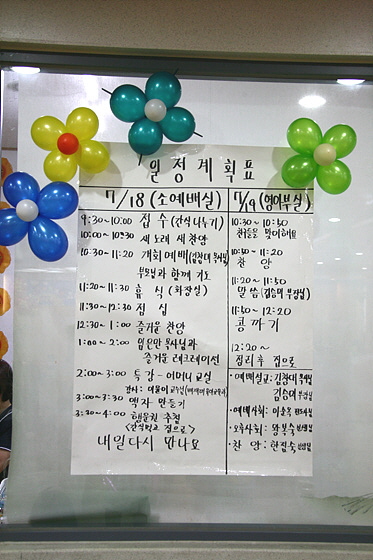 일정계획표
7/18 (소예배실)
9:30~10:00 접수 (간식나누기)
10:00~10:30 새노래 새찬양
10:30~11:20 개회예배
부모님과 함께 기도
11:20~11:30 휴식 (화장실)
11:30~12:30 점심
12:30~1:00 즐거운 찬양
1:00~2:00 목사님과
즐거운 레크레이션
2:00~3:00 특강 - 어머니 교실
강사:
3:00~3:30 액자 만들기
3:30~4:00 추첨
집으로>
내일다시 만나요
7/19 (영아부실)
10:30~10:50
친구들을 맞이해요
10:50~11:20
찬양
11:20~11:50
말씀 (김승미 부장님)
11:50~12:20
콩까기
12:20~
정리후 집으로
•예배설교: 김창대 목사님
김승미 부장님
•예배사회:
•오후사회:
•찬양: 한점숙